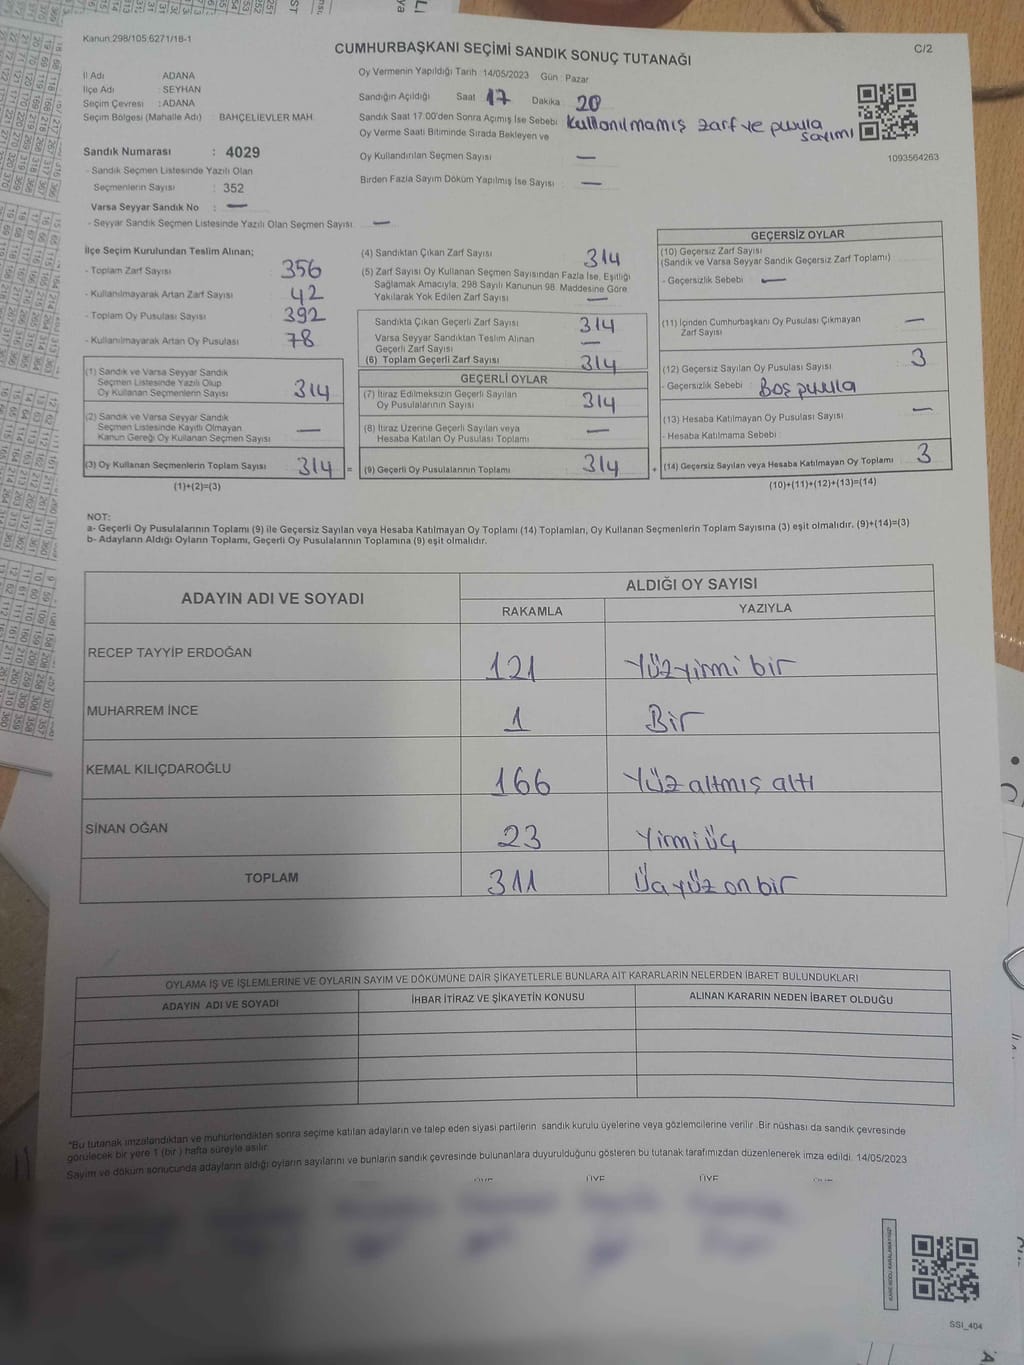 Kanun:298/105,6271/16-1
CUMHURBAŞKANI SEÇİMİ SANDIK SONUÇ TUTANAĞI
C/2
İl Adı : ADANA
İlçe Adı : SEYHAN
Seçim Çevresi : ADANA
Seçim Bölgesi (Mahalle Adı) : BAHÇELİEVLER MAH.
Oy Vermenin Yapıldığı Tarih :14/05/2023 Gün : Pazar
Sandığın Açıldığı Saat 17 Dakika 20
Sandık Saat 17.00'den Sonra Açımış İse Sebebi Kullanılmamış zarf ve pusula sayımı
Oy Verme Saati Bitiminde Sırada Bekleyen ve
Oy Kullandırılan Seçmen Sayısı —
Birden Fazla Sayım Döküm Yapılmış İse Sayısı —
1093564263
Sandık Numarası : 4029
- Sandık Seçmen Listesinde Yazılı Olan
Seçmenlerin Sayısı : 352
Varsa Seyyar Sandık No : —
- Seyyar Sandık Seçmen Listesinde Yazılı Olan Seçmen Sayısı : —
İlçe Seçim Kurulundan Teslim Alınan;
- Toplam Zarf Sayısı 356
- Kullanılmayarak Artan Zarf Sayısı 42
- Toplam Oy Pusulası Sayısı 392
- Kullanılmayarak Artan Oy Pusulası 78
(1) Sandık ve Varsa Seyyar Sandık
Seçmen Listesinde Yazılı Olup
Oy Kullanan Seçmenlerin Sayısı 314
(2) Sandık ve Varsa Seyyar Sandık
Seçmen Listesinde Kayıtlı Olmayan
Kanun Gereği Oy Kullanan Seçmen Sayısı —
(3) Oy Kullanan Seçmenlerin Toplam Sayısı 314 =
(1)+(2)=(3)
(4) Sandıktan Çıkan Zarf Sayısı 314
(5) Zarf Sayısı Oy Kullanan Seçmen Sayısından Fazla İse, Eşitliği
Sağlamak Amacıyla, 298 Sayılı Kanunun 98. Maddesine Göre
Yakılarak Yok Edilen Zarf Sayısı —
Sandıkta Çıkan Geçerli Zarf Sayısı 314
Varsa Seyyar Sandıktan Teslim Alınan
Geçerli Zarf Sayısı —
(6) Toplam Geçerli Zarf Sayısı 314
GEÇERLİ OYLAR
(7) İtiraz Edilmeksizin Geçerli Sayılan
Oy Pusulalarının Sayısı 314
(8) İtiraz Üzerine Geçerli Sayılan veya
Hesaba Katılan Oy Pusulası Toplamı —
(9) Geçerli Oy Pusulalarının Toplamı 314 +
GEÇERSİZ OYLAR
(10) Geçersiz Zarf Sayısı
(Sandık ve Varsa Seyyar Sandık Geçersiz Zarf Toplamı)
- Geçersizlik Sebebi : —
(11) İçinden Cumhurbaşkanı Oy Pusulası Çıkmayan
Zarf Sayısı —
(12) Geçersiz Sayılan Oy Pusulası Sayısı 3
- Geçersizlik Sebebi : Boş pusula
(13) Hesaba Katılmayan Oy Pusulası Sayısı —
- Hesaba Katılmama Sebebi :
(14) Geçersiz Sayılan veya Hesaba Katılmayan Oy Toplamı 3
(10)+(11)+(12)+(13)=(14)
NOT:
a- Geçerli Oy Pusulalarının Toplamı (9) ile Geçersiz Sayılan veya Hesaba Katılmayan Oy Toplamı (14) Toplamları, Oy Kullanan Seçmenlerin Toplam Sayısına (3) eşit olmalıdır. (9)+(14)=(3)
b- Adayların Aldığı Oyların Toplamı, Geçerli Oy Pusulalarının Toplamına (9) eşit olmalıdır.
ADAYIN ADI VE SOYADI
ALDIĞI OY SAYISI
RAKAMLA YAZIYLA
RECEP TAYYİP ERDOĞAN 121 Yüzyirmi bir
MUHARREM İNCE 1 Bir
KEMAL KILIÇDAROĞLU 166 Yüz altmış altı
SİNAN OĞAN 23 Yirmi üç
TOPLAM 311 Üçyüz on bir
OYLAMA İŞ VE İŞLEMLERİNE VE OYLARIN SAYIM VE DÖKÜMÜNE DAİR ŞİKAYETLERLE BUNLARA AİT KARARLARIN NELERDEN İBARET BULUNDUKLARI
ADAYIN ADI VE SOYADI İHBAR İTİRAZ VE ŞİKAYETİN KONUSU ALINAN KARARIN NEDEN İBARET OLDUĞU
*Bu tutanak imzalandıktan ve mühürlendikten sonra seçime katılan adayların ve talep eden siyasi partilerin sandık kurulu üyelerine veya gözlemcilerine verilir .Bir nüshası da sandık çevresinde
görülecek bir yere 1 (bir ) hafta süreyle asılır.
Sayım ve döküm sonucunda adayların aldığı oyların sayılarını ve bunların sandık çevresinde bulunanlara duyurulduğunu gösteren bu tutanak tarafımızdan düzenlenerek imza edildi. 14/05/2023
ÜYE ÜYE ÜYE
SSI_404